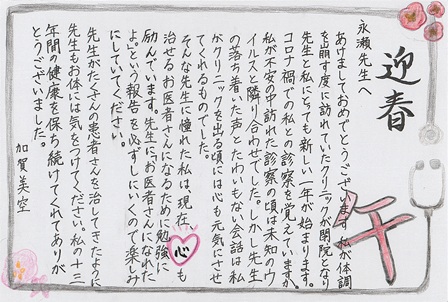 迎春
午
永瀬先生へ
あけましておめでとうございます。私が体調
を崩す度に訪れていたクリニックが閉院となり
先生と私にとっても新しい一年が始まります。
コロナ禍での私との診察を覚えていますか。
私が不安の中訪れた診察の頃は未知のウ
イルスと隣り合わせでした。しかし先生
の落ち着いた声とたわいもない会話は私
がクリニックを出る頃には心も元気にさせ
てくれるものでした。
そんな先生に憧れた私は、現在、心も
治せるお医者さんになるために勉強に
励んでいます。先生に「お医者さんになれた
よ。」という報告を必ずしにいくので楽しみ
にしていてください。
先生がたくさんの患者さんを治してきたように
先生もお体には気をつけてください。私の十二
年間の健康を保ち続けてくれてありが
とうございました。
加賀美空